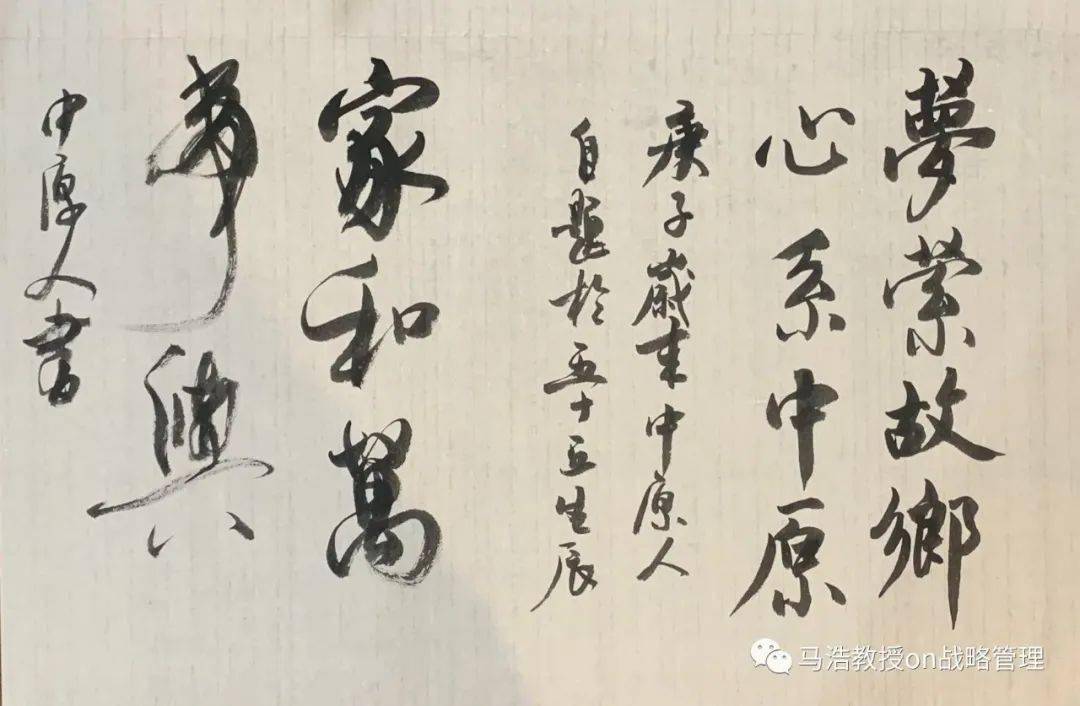 夢縈故鄉
心系中原
庚子歲末中原人
自題於五十五生辰
家和萬
事興
中原人書
马浩教授on战略管理